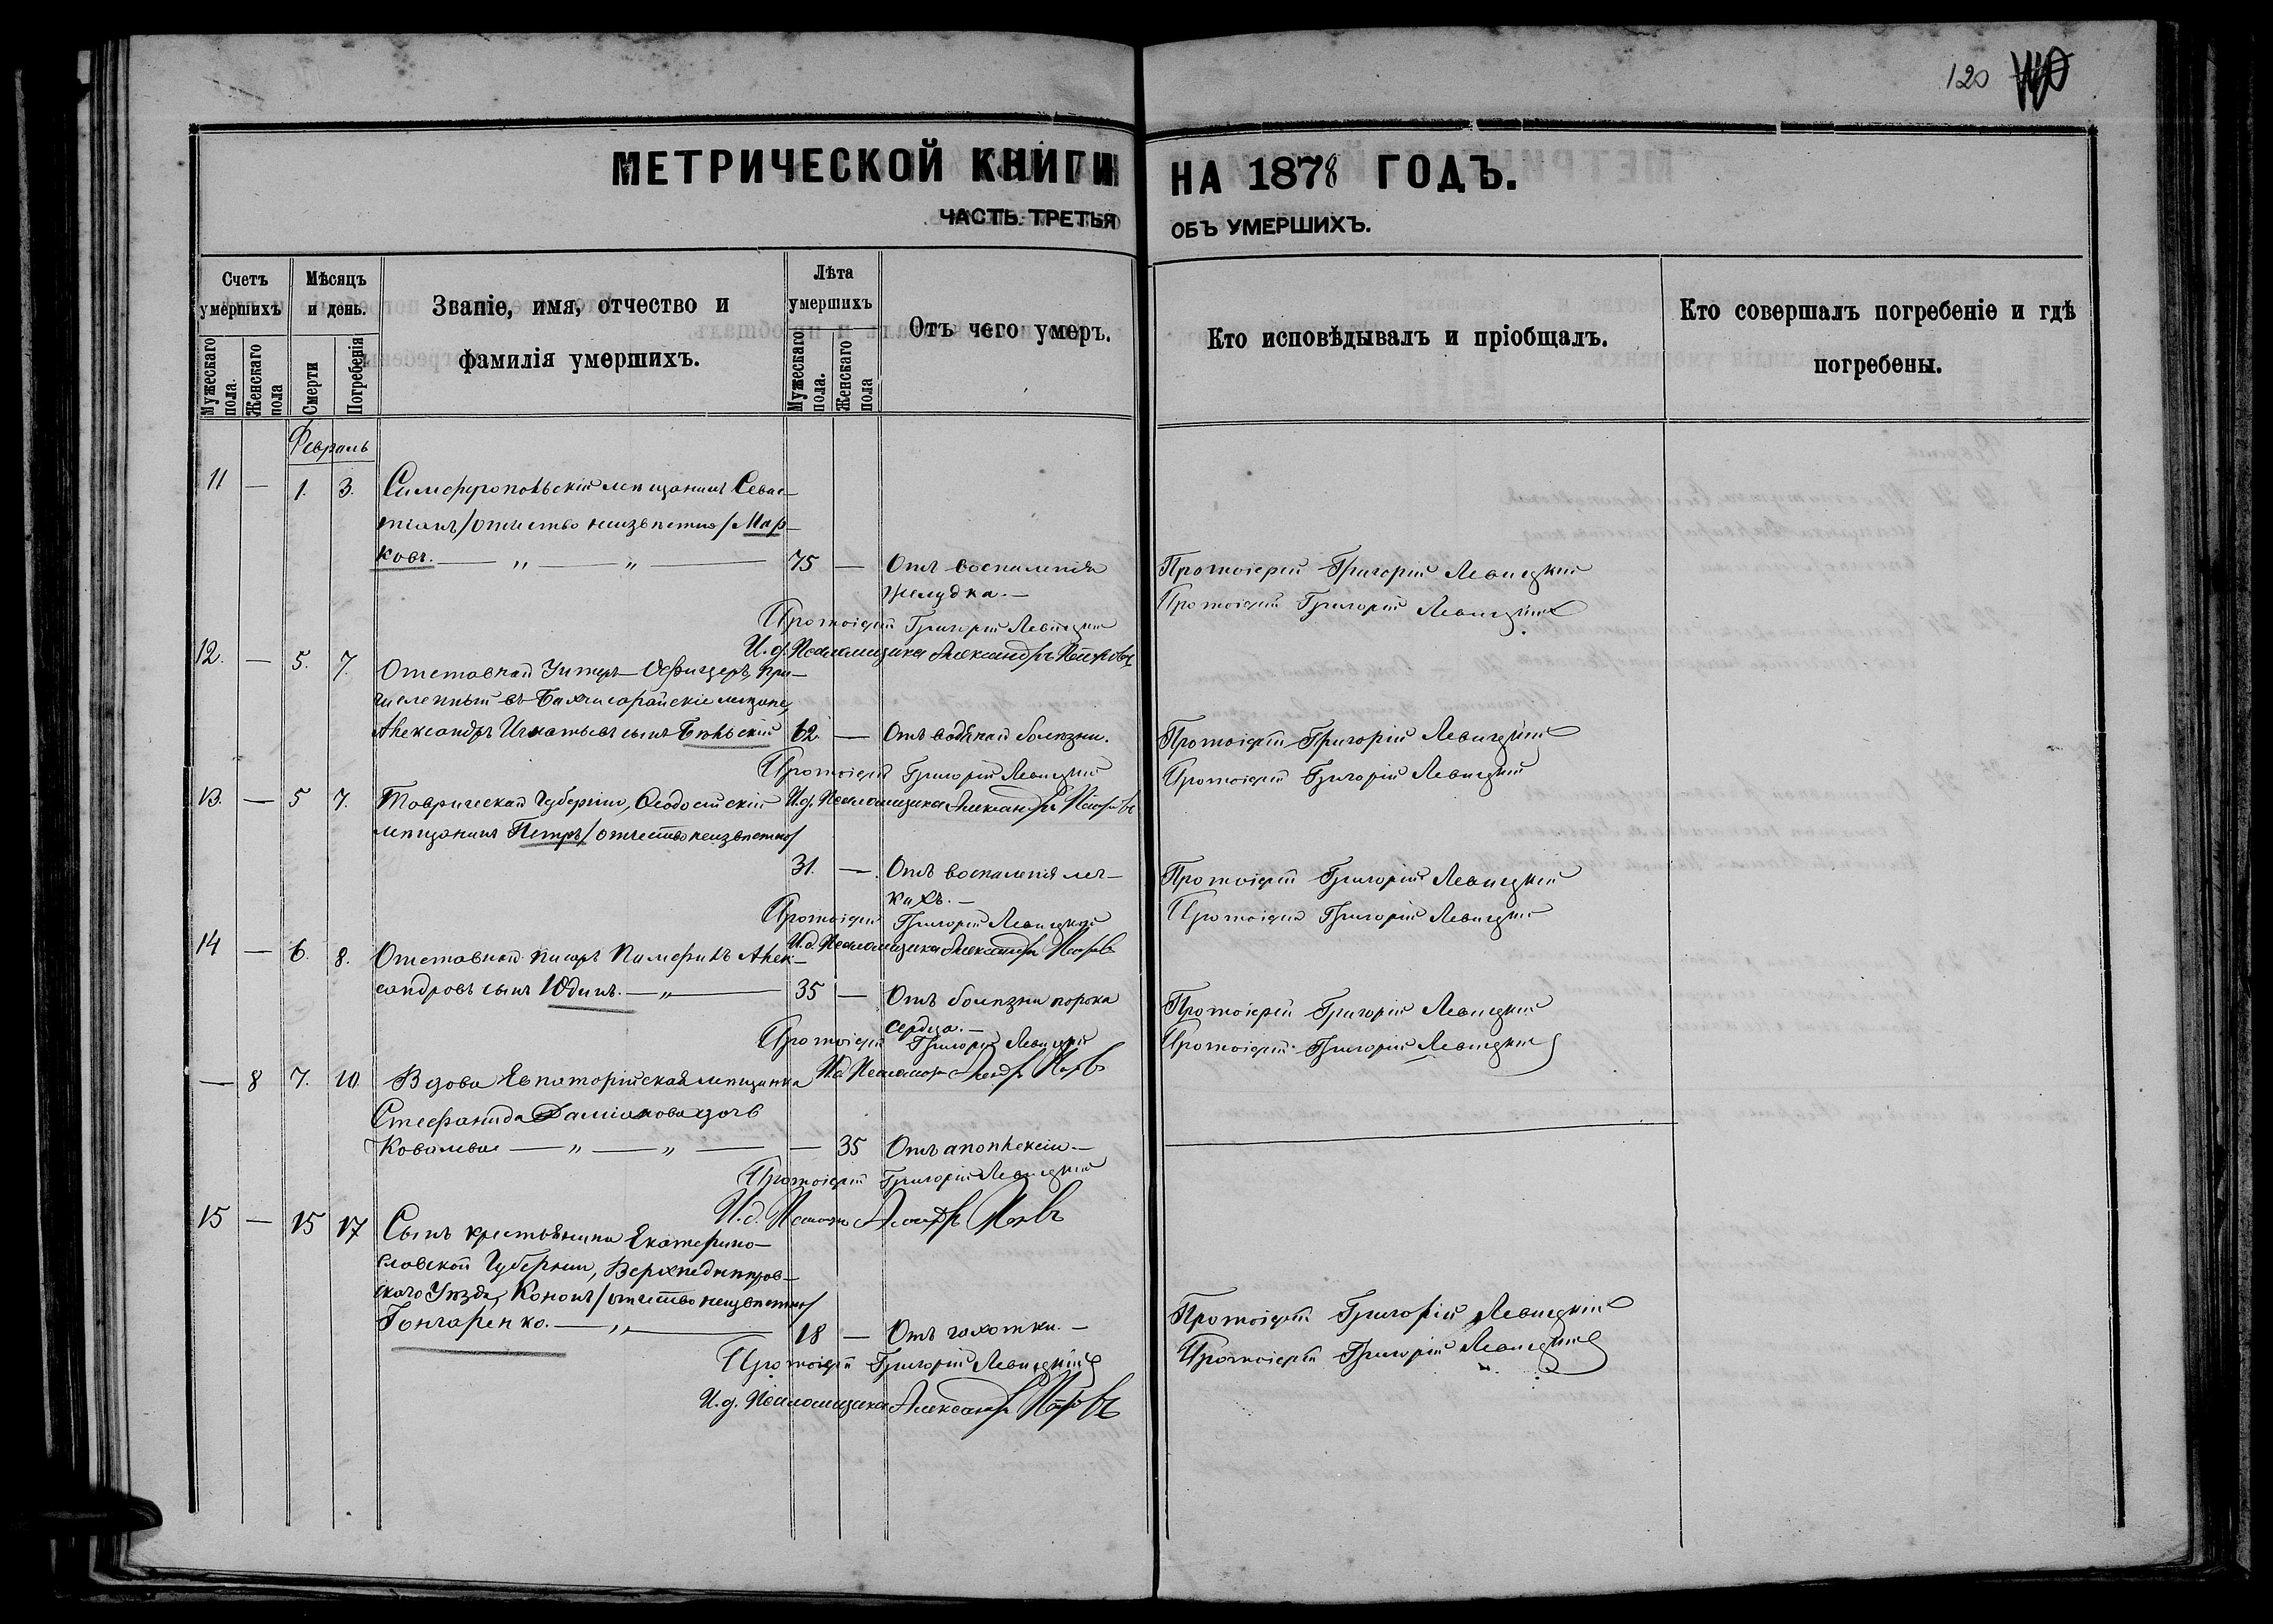 120
МЕТРИЧЕСКОЙ КНИГИ НА 1878 ГОДЪ.
ЧАСТЬ ТРЕТЬЯ ОБЪ УМЕРШИХЪ.
Счетъ умершихъ
Мужескаго пола.
Женскаго пола
Мѣсяцъ и день.
Смерти
Погребенія
Званіе, имя, отчество и
фамилія умершихъ.
Лѣта умершихъ
Мужескаго пола.
Женскаго пола
Отъ чего умеръ.
Кто исповѣдывалъ и пріобщалъ.
Кто совершалъ погребеніе и гдѣ
погребены.
Февраль
11 — 1. 3. Симферопольскій мѣщанинъ Севас-
тіанъ /отчество неизвѣстно/ Мар-
ковъ. — „ — „ — 75 — Отъ воспаленія
желудка. —
Протоіерей Григорій Левицкій
Протоіерей Григорій Левицкій
Протоіерей Григорій Левицкій
И. д. Псаломщика Александръ Петровъ
12. — 5. 7. Отставной Унтеръ-Офицеръ, при-
численный въ Бахчисарайскіе мѣщане,
Александръ Игнатьевъ сынъ Бѣльскій 62. — Отъ водяной болѣзни.
Протоіерей Григорій Левицкій
Протоіерей Григорій Левицкій
Протоіерей Григорій Левицкій
И. д. Псаломщика Александръ Петровъ
13. — 5 7. Таврической Губерніи, Ѳеодосійскій
мѣщанинъ Петръ /отчество неизвѣстно/
31. — Отъ воспаленія лег-
кихъ. —
Протоіерей Григорій Левицкій
Протоіерей Григорій Левицкій
Протоіерей Григорій Левицкій
И. д. Псаломщика Александръ Петровъ
14 — 6. 8. Отставной писарь Памфилъ Алек-
сандровъ сынъ Юдинъ. — „ — 35 — Отъ болѣзни порока
сердца. —
Протоіерей Григорій Левицкій
Протоіерей Григорій Левицкій
Протоіерей Григорій Левицкій
И. д. Псаломщ
— 8 7. 10 Вдова Евпаторійская мѣщанка
Стефанида Даміанова дочь
Ковалева — „ — „ — — 35 Отъ апоплексіи —
Протоіерей Григорій Левицкій
И. д. Псаломщ
15 — 15 17 Сынъ крестьянина Екатерино-
славской Губерніи, Верхнеднѣпров-
скаго Уѣзда, Кононъ /отчество неизвѣстно/
Гончаренко. — „ — 18 — Отъ чахотки. —
Протоіерей Григорій Левицкій
Протоіерей Григорій Левицкій
Протоіерей Григорій Левицкій
И. д. Псаломщика Александръ Петровъ